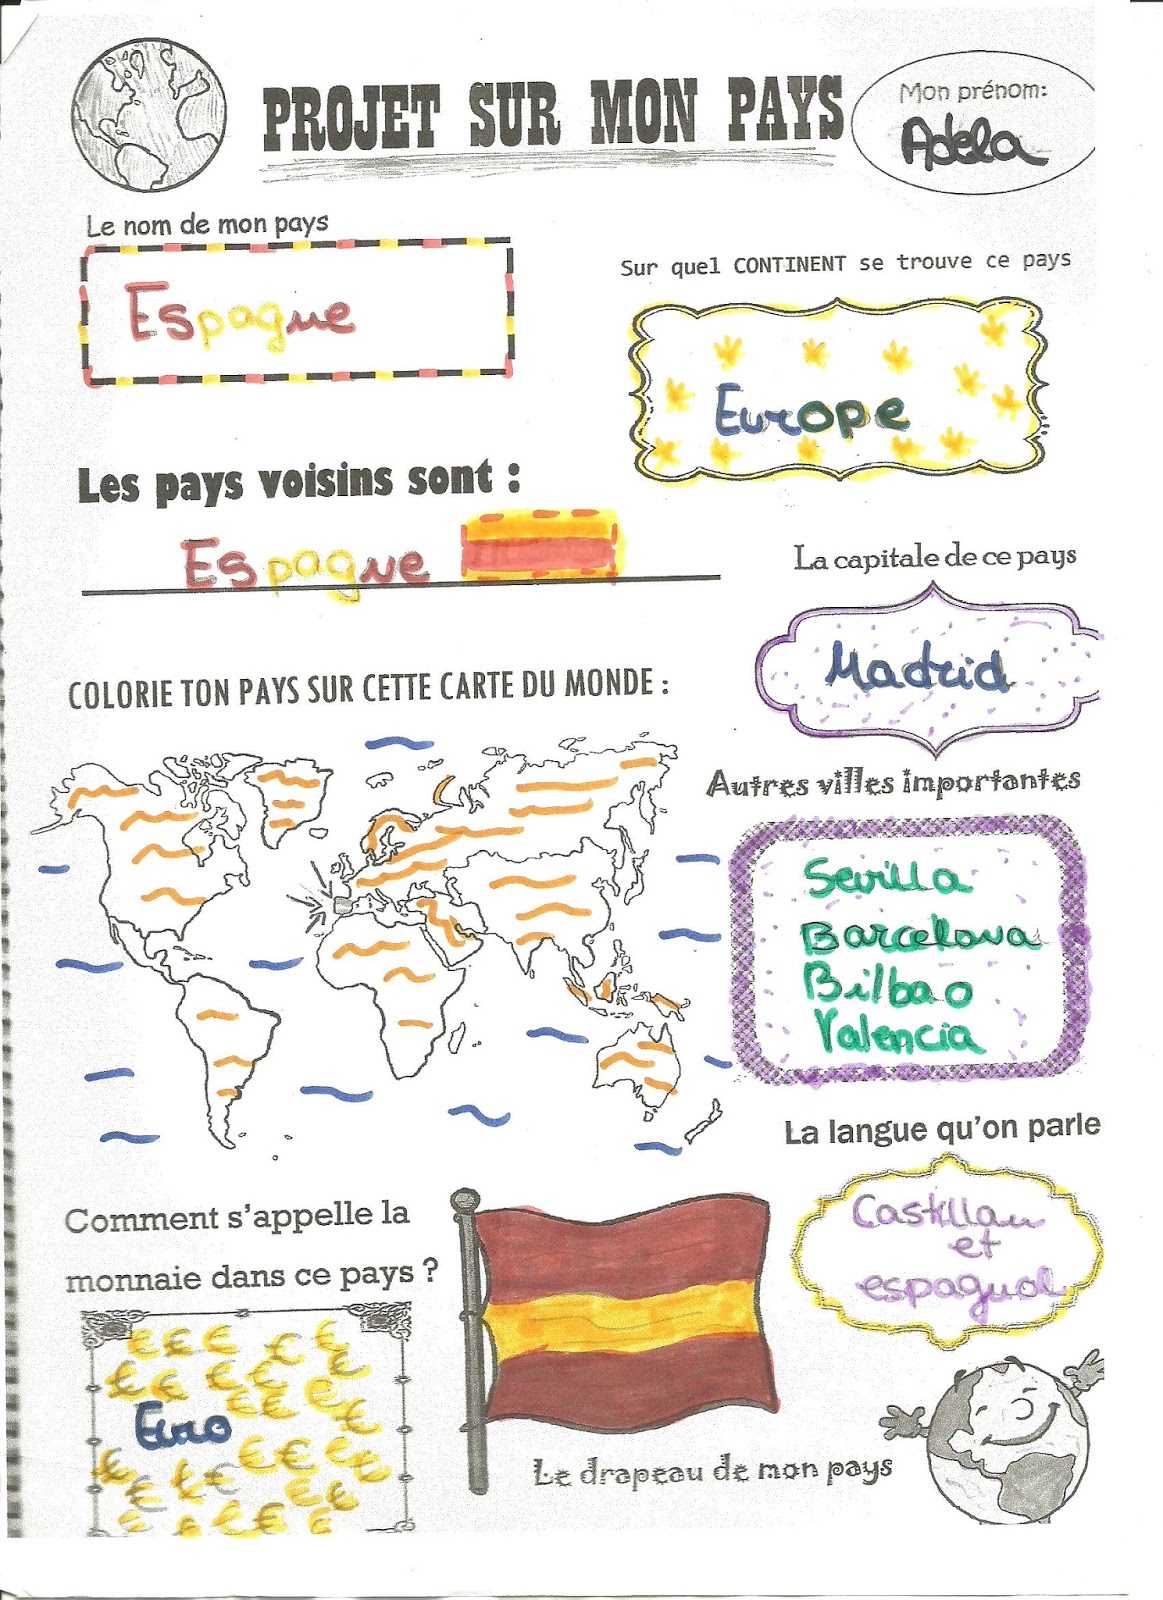 PROJET SUR MON PAYS
Mon prénom:
Adela
Le nom de mon pays
Espagne
Sur quel CONTINENT se trouve ce pays
Europe
Les pays voisins sont :
Espagne
La capitale de ce pays
Madrid
COLORIE TON PAYS SUR CETTE CARTE DU MONDE :
Autres villes importantes
Sevilla
Barcelona
Bilbao
Valencia
La langue qu'on parle
Castillan
et
espagnol
Comment s'appelle la
monnaie dans ce pays ?
€ € € € €
€ € € € €
€ € € €
Euro
€ € € €
€ € € €
€ € €
€ € € €
Le drapeau de mon pays